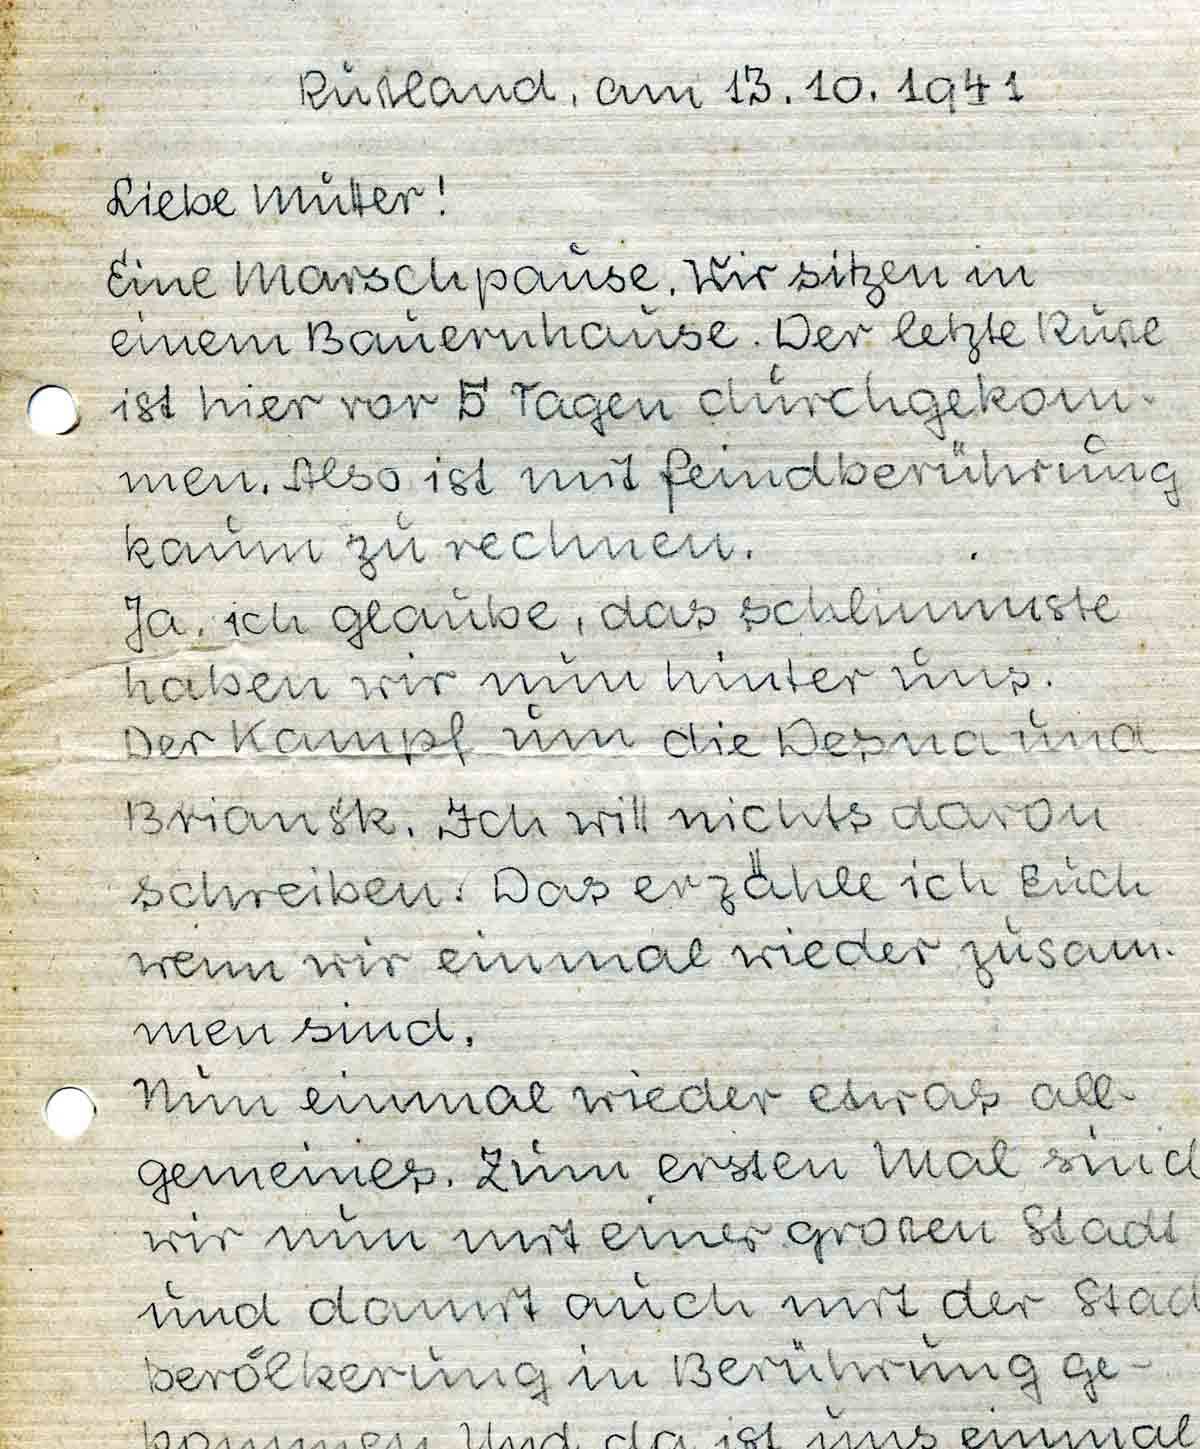 Rußland, am 13.10.1941
Liebe Mutter!
Eine Marschpause. Wir sitzen in
einem Bauernhause. Der letzte Ruße
ist hier vor 5 Tagen durchgekom-
men. Also ist mit Feindberührung
kaum zu rechnen.
Ja, ich glaube, das schlimmste
haben wir nun hinter uns.
Der Kampf um die Desna und
Briansk. Ich will nichts davon
schreiben. Das erzähle ich Euch
wenn wir einmal wieder zusam-
men sind.
Nun einmal wieder etwas all-
gemeines. Zum ersten Mal sind
wir nun mit einer großen Stadt
und damit auch mit der Stad
bevölkerung in Berührung ge-
kommen. Und da ist uns einmal